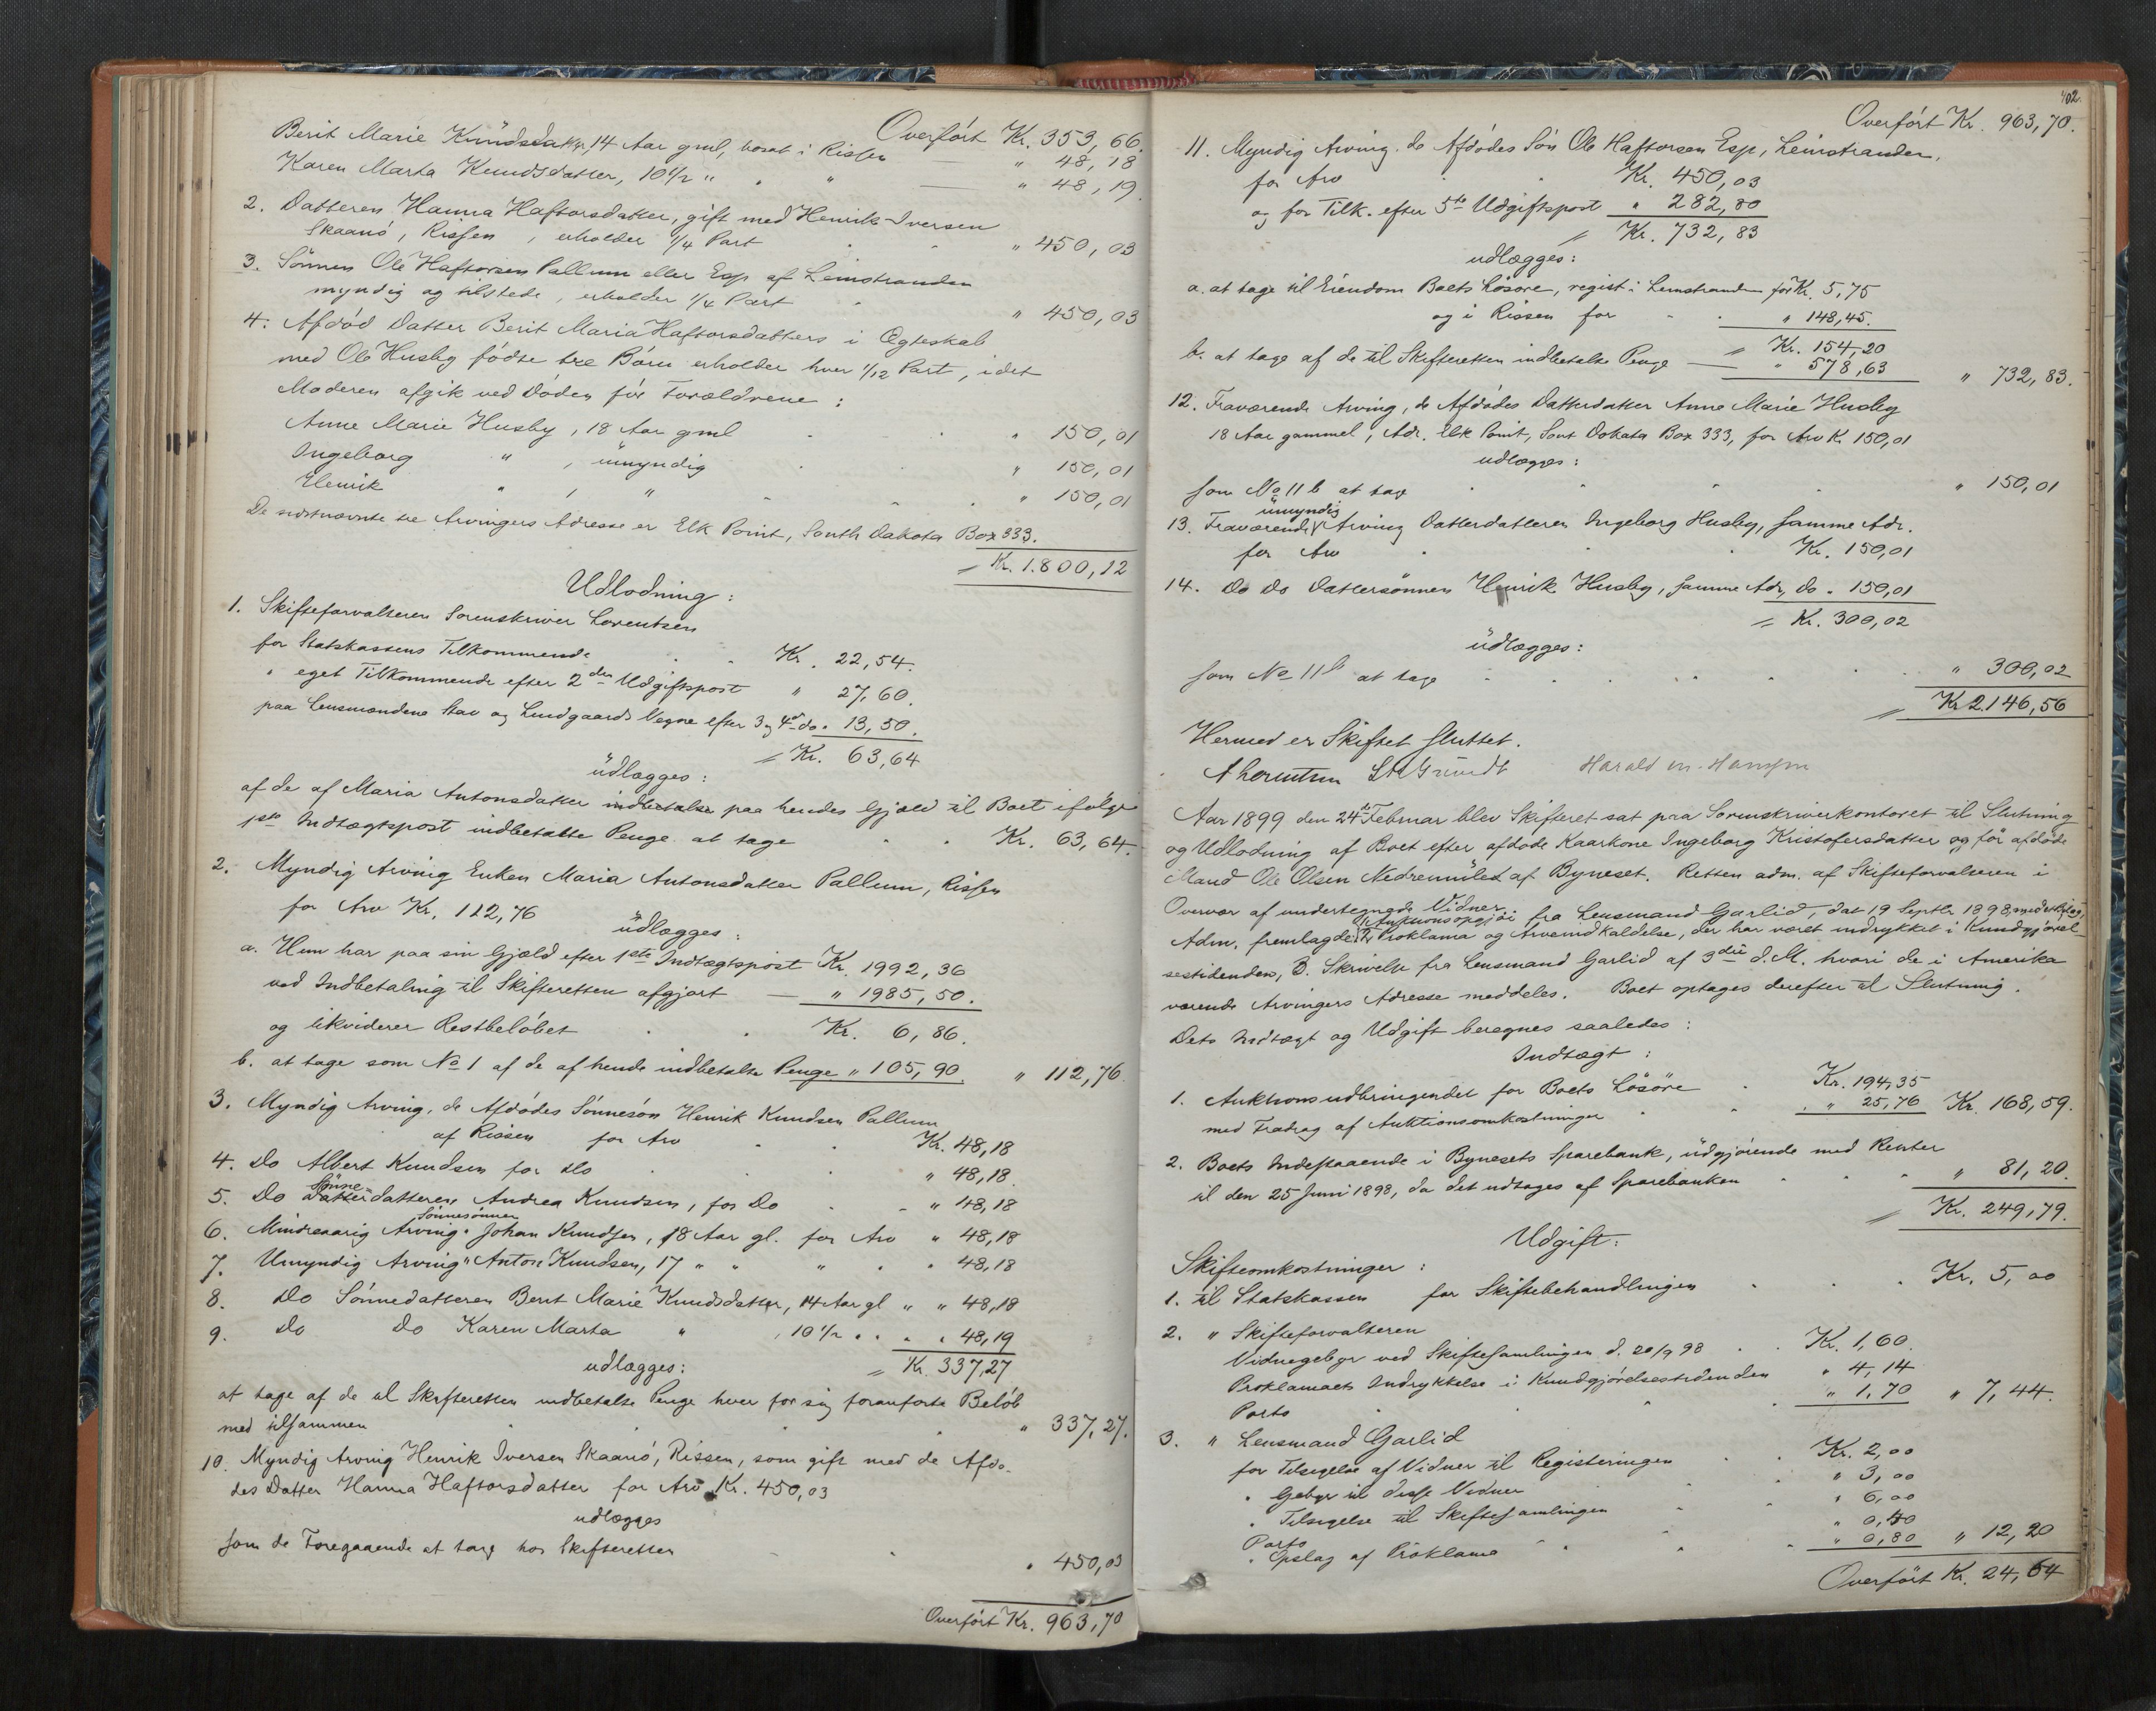 Overført Kr. 353,66.
Berit Marie Knudsdatter, 14 Aar gml, bosat i Rissen " 48,18
Karen Marta Knudsdatter, 10 1/2 " " " — " 48,19.
2. Datteren Hanna Haftorsdatter, gift med Henrik Iversen
Skaanø, Rissen, erholder 1/4 Part " 450,03
3. Sønnen Ole Haftorsen Pallum eller Esp af Leinstranden
myndig og tilstede, erholder 1/4 Part " 450,03
4. Afdød Datter Berit Maria Haftorsdatters i Ægteskab
med Ole Husby fødte tre Børn erholder hver 1/12 Part, idet
Moderen afgik ved Døden før Forældrene:
Anne Marie Husby, 18 Aar gml " 150,01
Ingeborg " , umyndig " 150,01
Henrik " , " " 150,01
De sidstnævnte tre Arvingers Adresse er Elk Point, South Dakota Box 333.
Kr. 1.800,12
Udlodning:
1. Skifteforvalteren Sorenskriver Lorentzen
for Statskassens Tilkommende Kr. 22,54.
" eget Tilkommende efter 2den Udgiftspost " 27,60.
paa Lensmændene Stav og Lundgaards Vegne efter 3 og 4de do " 13,50.
Kr. 63,64
udlægges:
af de af Maria Antonsdatter indbetalte paa hendes Gjæld til Boet ifølge
1ste Indtægtspost indbetalte Penge at tage Kr. 63,64.
2. Myndig Arving Enken Maria Antonsdatter Pallum, Rissen
for Arv Kr. 112,76
udlægges:
a. Hun har paa sin Gjæld efter 1ste Indtægtspost Kr. 1992,36
ved Indbetaling til Skifteretten afgjort — " 1985,50.
og likviderer Restbeløbet Kr. 6,86.
b. at tage som No 1 af de af hende indbetalte Penge " 105,90. " 112,76.
3. Myndig Arving, de Afdødes Sønnesøn Henrik Knudsen Pallum
af Rissen for Arv Kr. 48,18
4. Do Albert Knudsen for do " 48,18.
Sønne-
5. Do Datterdatteren Andrea Knudsen, for Do " 48,18
Sønnesønnen
6. Mindreaarig Arving " Johan Knudsen, 18 Aar gl. for Arv " 48,18
7. Umyndig Arving " Anton Knudsen, 17 " " " " 48,18
8. Do Sønnedatteren Berit Marie Knudsdatter, 14 Aar gl " " 48,18
9. Do Do Karen Marta " , 10 1/2 " " " " 48,19
Kr. 337,27
udlægges:
at tage af de til Skifteretten indbetalte Penge hver for sig foranførte Beløb
med tilsammen " 337,27.
10. Myndig Arving Henrik Iversen Skaanø, Rissen, som gift med de Afdø-
des Datter Hanna Haftorsdatter for Arv Kr. 450,03
udlægges
som de Foregaaende at tage hos Skifteretten " 450,03
Overført Kr. 963,70
402.
Overført Kr. 963,70.
11. Myndig Arving. de Afdødes Søn Ole Haftorsen Esp, Leinstranden,
for Arv Kr. 450,03
og for Tilk. efter 5te Udgiftspost " 282,80
Kr. 732,83
udlægges:
a. at tage til Eiendom Boets Løsøre, regist. i Leinstranden for Kr. 5,75
og i Rissen for " 148,45.
Kr. 154,20
b. at tage af de til Skifteretten indbetalte Penge — " 578,63 " 732,83.
12. Fraværende Arving, de Afdødes Datterdatter Anne Marie Husby
18 Aar gammel, Adr. Elk Point, Sout Dakata Box 333, for Arv Kr. 150,01
udlægges:
som No 11 b at tage " 150,01
umyndig
13. Fraværende Arving Datterdatteren Ingeborg Husby, samme Adr.
for Arv Kr. 150,01
14. Do Do Dattersønnen Henrik Husby, samme Adr, do " 150,01
Kr. 300,02
udlægges:
som No 11 b at tage " 300,02
Kr 2146,56
Hermed er Skiftet sluttet.
A Lorentzen Harald M. Hansen
Aar 1899 den 24de Februar blev Skifteret sat paa Sorenskriverkontoret til Slutning
og Udlodning af Boet efter afdøde Kaarkone Ingeborg Kristofersdatter og før afdøde
Mand Ole Olsen af Byneset. Retten adm. af Skifteforvalteren i
Overvær af undertegnede Vidner.
Adm. fremlagde Auktionsopgjør fra Lensmand Garlid, dat 19 Septbr 1898,
Proklama og Arveindkaldelse, der har været indrykket i Kundgjørel-
sestidenden, 3. Skrivelse fra Lensmand Garlid af 3die d.M. hvori de i Amerika
værende Arvingers Adresse meddeles. Boet optages derefter til Slutning.
Dets Indtægt og Udgift beregnes saaledes:
Indtægt:
1. Auktionsudbringendet for Boets Løsøre Kr. 194,35
med Fradrag af Auktionsomkostninger " 25,76 Kr. 168,59.
2. Boets Indestaaende i Bynesets Sparebank, udgjørende med Renter
til den 25 Juni 1898, da det udtoges af Sparebanken " 81,20.
Kr. 249,79.
Udgift:
Skifteomkostninger:
1. til Statskassen for Skiftebehandlingen Kr. 5,00
2. " Skifteforvalteren
Vidnegebyr ved Skiftesamlingen d. 20/9 98 Kr. 1,60.
Proklamaets Indrykkelse i Kundgjørelsestidenden " 4,14
Porto " 1,70 " 7,44.
3. " Lensmand Garlid
for Tilsigelse af Vidner til Registeringen Kr. 2,00
" Gebyr til disse Vidner " 3,00
" Tilsigelse til Skiftesamlingen " 6,00
Porto " 0,40
" Opslag af Proklama " 0,80 " 12,20
Overført Kr. 24,64